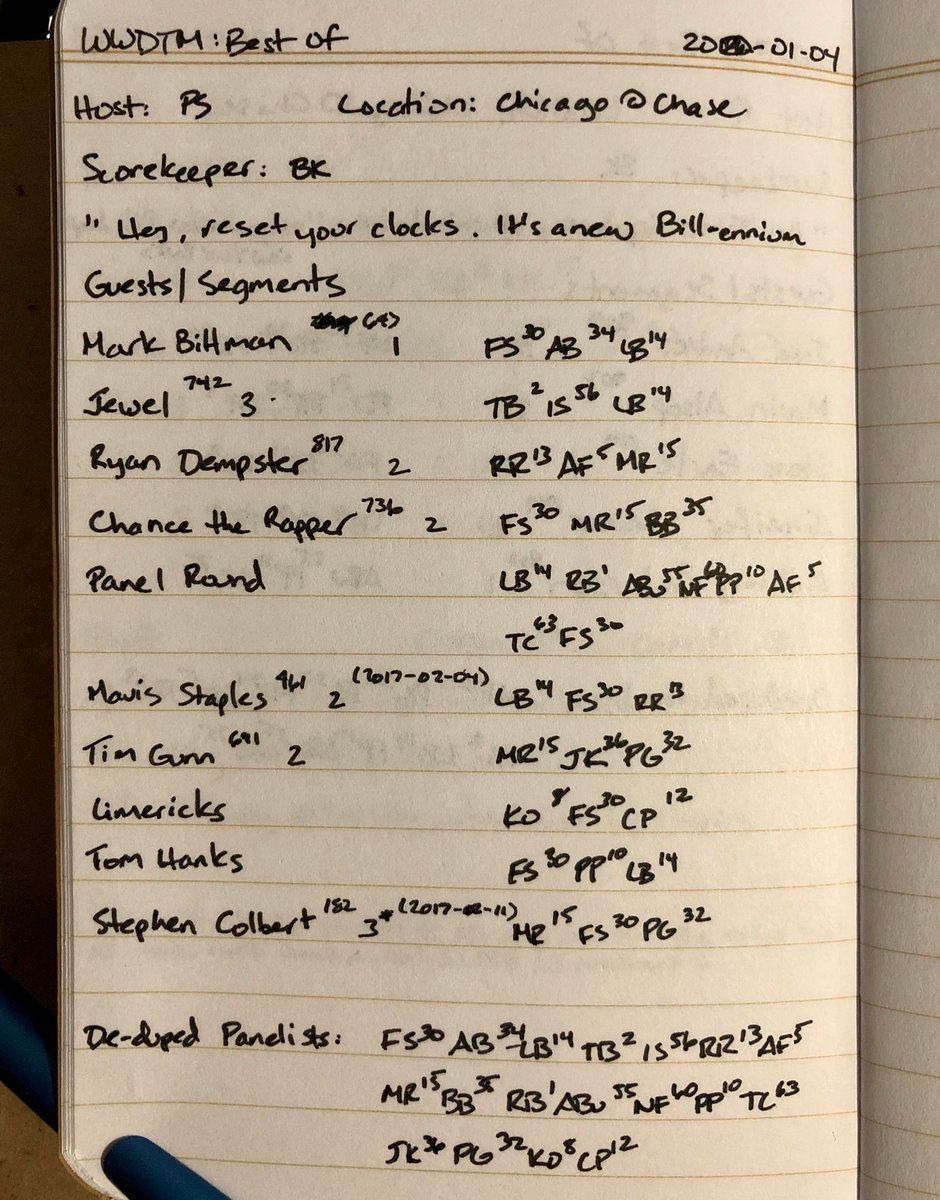 WWDTM: Best of 20-01-04
Host: PS Location: Chicago @ Chase
Scorekeeper: BK
" Hey, reset your clocks. It's a new Bill-ennium
Guests/Segments
Mark Bittman 1 FS30 AB34 LB14
Jewel 742 3 TB2 IS56 LB14
Ryan Dempster 817 2 RR13 AF5 MR15
Chance the Rapper 736 2 FS30 MR15 BB35
Panel Round LB14 RB1 ABu55 NF60 PP10 AF5
TC63 FS30
Mavis Staples 961 2 (2017-02-04) LB14 FS30 RR13
Tim Gunn 691 2 MR15 JK36 PG32
Limericks KO8 FS30 CP12
Tom Hanks FS30 PP10 LB14
Stephen Colbert 182 3* (2017-02-11) MR15 FS30 PG32
De-duped Panelists: FS30 AB34 LB14 TB2 IS56 RR13 AF5
MR15 BB35 RB1 ABu55 NF60 PP10 TC63
JK36 PG32 KO8 CP12